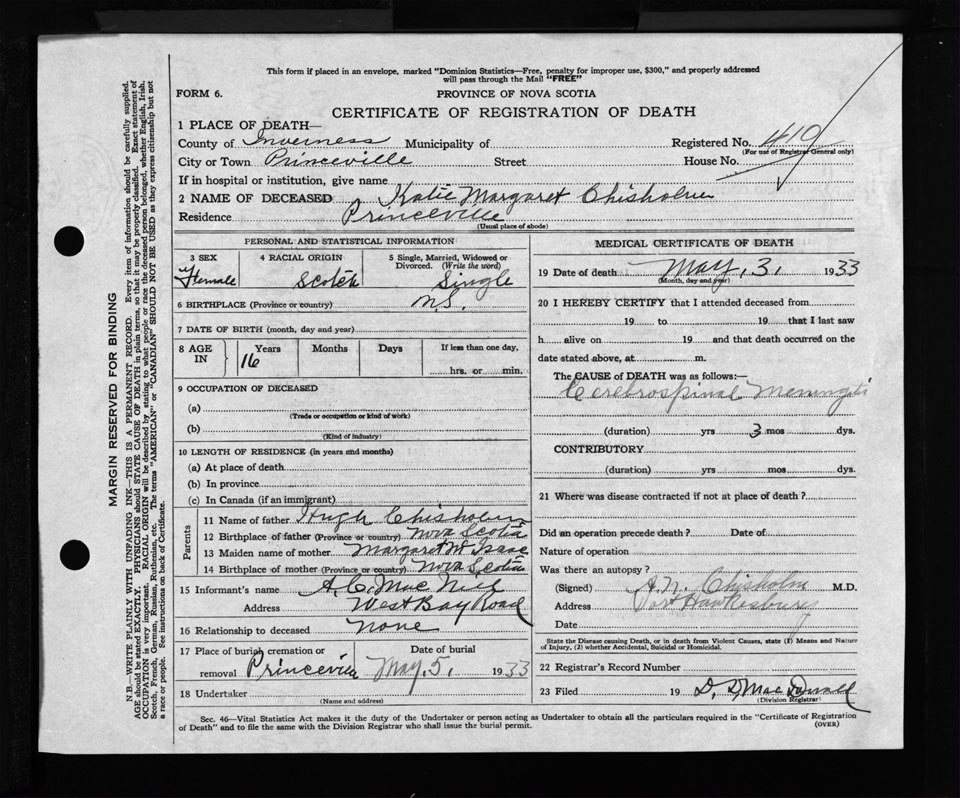 This form if placed in an envelope, marked "Dominion Statistics—Free, penalty for improper use, $300," and properly addressed
will pass through the Mail "FREE"
FORM 6. PROVINCE OF NOVA SCOTIA
CERTIFICATE OF REGISTRATION OF DEATH
1 PLACE OF DEATH—
County of Inverness Municipality of Registered No. 410
(For use of Registrar General only)
City or Town Princeville Street House No.
If in hospital or institution, give name
2 NAME OF DECEASED Katie Margaret Chisholm
Residence Princeville
(Usual place of abode)
PERSONAL AND STATISTICAL INFORMATION
3 SEX 4 RACIAL ORIGIN 5 Single, Married, Widowed or
Divorced. (Write the word)
Female Scotch Single
6 BIRTHPLACE (Province or country) N.S.
7 DATE OF BIRTH (month, day and year)
8 AGE IN Years Months Days If less than one day,
16 hrs. or min.
9 OCCUPATION OF DECEASED
(a)
(Trade or occupation or kind of work)
(b)
(Kind of industry)
10 LENGTH OF RESIDENCE (in years and months)
(a) At place of death
(b) In province
(c) In Canada (if an immigrant)
Parents
11 Name of father Hugh Chisholm
12 Birthplace of father (Province or country) Nova Scotia
13 Maiden name of mother Margaret Mc Isaac
14 Birthplace of mother (Province or country) Nova Scotia
15 Informant's name A. C. Mac Niel
Address West Bay Road
16 Relationship to deceased None
17 Place of burial cremation or Date of burial
removal Princeville May, 5, 1933
18 Undertaker
(Name and address)
MEDICAL CERTIFICATE OF DEATH
19 Date of death May, 3, 1933
(Month, day and year)
20 I HEREBY CERTIFY that I attended deceased from
19 to 19 that I last saw
h alive on 19 and that death occurred on the
date stated above, at m.
The CAUSE of DEATH was as follows:—
Cerebrospinal Meningitis
(duration) yrs 3 mos dys.
CONTRIBUTORY
(duration) yrs mos dys.
21 Where was disease contracted if not at place of death?
Did an operation precede death? Date of
Nature of operation
Was there an autopsy?
(Signed) A. N. Chisholm M.D.
Address Port Hawkesbury
Date
State the Disease causing Death, or in death from Violent Causes, state (1) Means and Nature
of Injury, (2) whether Accidental, Suicidal or Homicidal.
22 Registrar's Record Number
23 Filed 19 D. D.
(Division Registrar)
Sec. 46—Vital Statistics Act makes it the duty of the Undertaker or person acting as Undertaker to obtain all the particulars required in the "Certificate of Registration
of Death" and to file the same with the Division Registrar who shall issue the burial permit. (OVER)
MARGIN RESERVED FOR BINDING
N.B.—WRITE PLAINLY WITH UNFADING INK—THIS IS A PERMANENT RECORD. Every item of information should be carefully supplied.
AGE should be stated EXACTLY. PHYSICIANS should STATE CAUSE OF DEATH in plain terms, so that it may be properly classified. Exact statement of
OCCUPATION is very important. RACIAL ORIGIN will be described by stating to what people or race the deceased person belonged, whether English, Irish,
Scotch, French, German, Russian, Ruthenian, etc. The terms "AMERICAN" or "CANADIAN" SHOULD NOT BE USED as they express citizenship but not
a race or people. See instructions on back of Certificate.